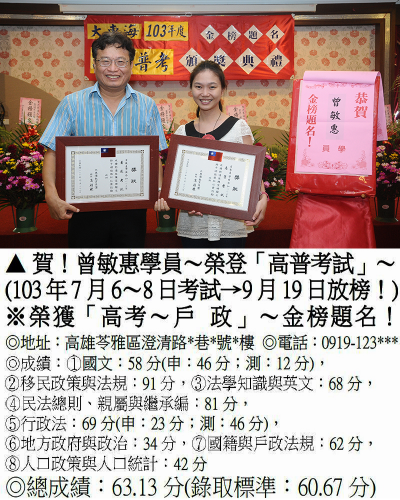 大東海 103年度 金榜題名
普考 頒獎典禮
恭賀
曾敏惠
學員
金榜題名！
獎狀
獎狀
▲賀！曾敏惠學員～榮登「高普考試」～
(103年7月6～8日考試→9月19日放榜！)
※榮獲「高考～戶 政」～金榜題名！
◎地址：高雄苓雅區澄清路*巷*號*樓 ◎電話：0919-123***
◎成績：①國文：58分(申：46分；測：12分)，
②移民政策與法規：91分，③法學知識與英文：68分，
④民法總則、親屬與繼承編：81分，
⑤行政法：69分(申：23分；測：46分)，
⑥地方政府與政治：34分，⑦國籍與戶政法規：62分，
⑧人口政策與人口統計：42分
◎總成績：63.13分(錄取標準：60.67分)